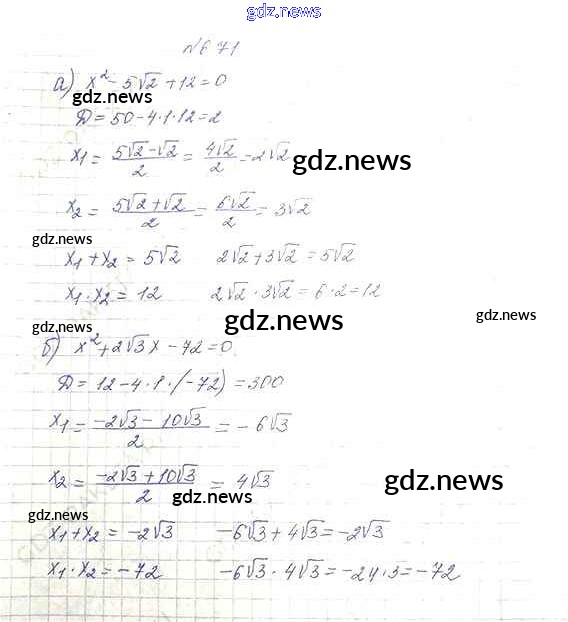 gdz.news
№671
а) x² - 5√2 + 12 = 0
gdz.news
Д = 50 - 4·1·12 = 2
x₁ = (5√2 - √2)/2 = 4√2/2 = 2√2
gdz.news
x₂ = (5√2 + √2)/2 = 6√2/2 = 3√2
gdz.news
x₁ + x₂ = 5√2 2√2 + 3√2 = 5√2
x₁ · x₂ = 12 2√2 · 3√2 = 6·2 = 12
gdz.news gdz.news gdz.news
б) x² + 2√3x - 72 = 0
Д = 12 - 4·1·(-72) = 300
x₁ = (-2√3 - 10√3)/2 = -6√3
x₂ = (-2√3 + 10√3)/2 = 4√3
gdz.news gdz.news
gdz.news
x₁ + x₂ = -2√3 -6√3 + 4√3 = -2√3
x₁ · x₂ = -72 -6√3 · 4√3 = -24·3 = -72